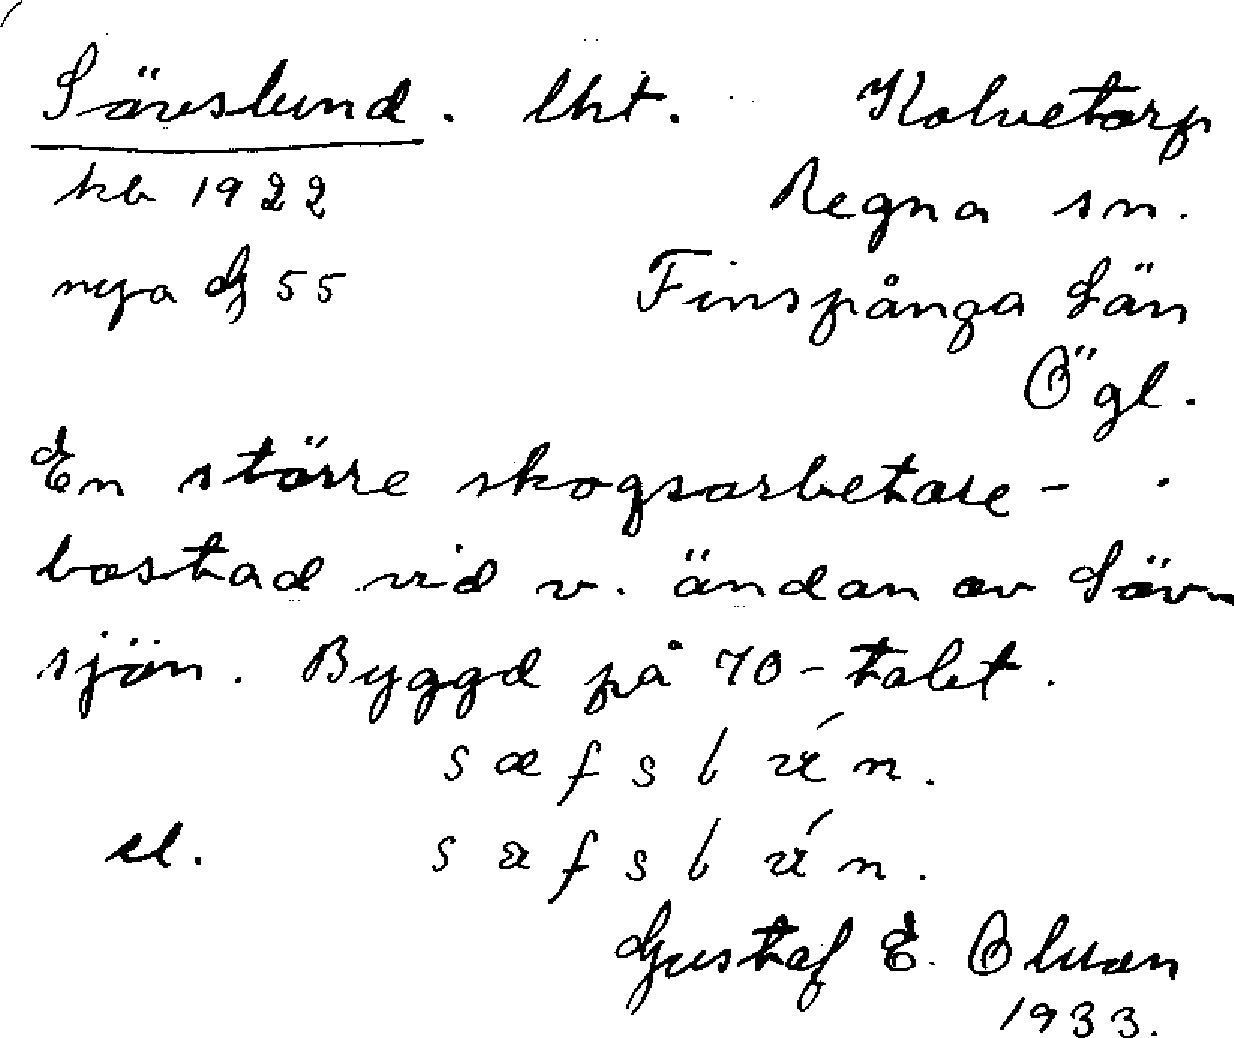 Sävslund. lht. Kolvetorp
kb 1922 Regna sn.
nya G 55 Finspånga Län
Ögl.
En större skogsarbetare-
bostad vid v. ändan av Sävn
sjön. Byggd på 70-talet.
s æ f s l n.
el. s a f s l n.
Gustaf E.
1933.